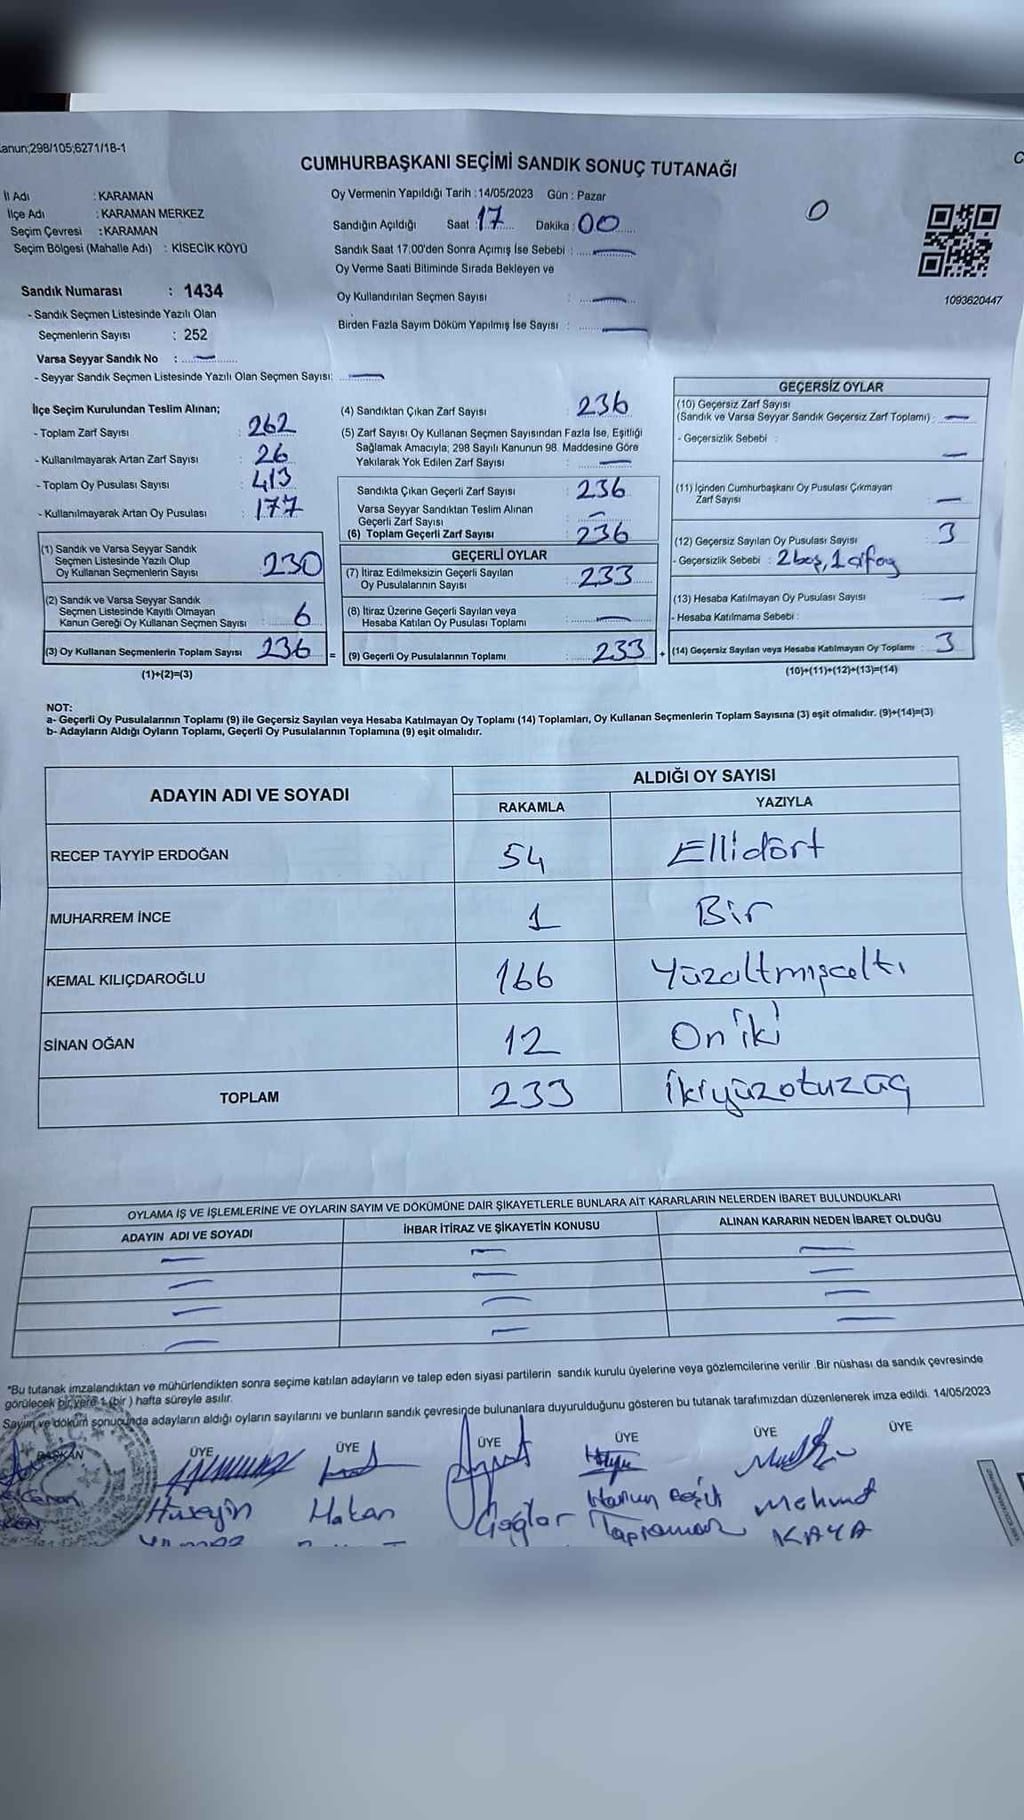 anun;298/105;6271/18-1
CUMHURBAŞKANI SEÇİMİ SANDIK SONUÇ TUTANAĞI
İl Adı : KARAMAN
İlçe Adı : KARAMAN MERKEZ
Seçim Çevresi : KARAMAN
Seçim Bölgesi (Mahalle Adı) : KISECIK KÖYÜ
Oy Vermenin Yapıldığı Tarih : 14/05/2023 Gün : Pazar
Sandığın Açıldığı Saat : 17 Dakika : 00
Sandık Saat 17.00'den Sonra Açımış İse Sebebi : —
Oy Verme Saati Bitiminde Sırada Bekleyen ve
Oy Kullandırılan Seçmen Sayısı : —
Birden Fazla Sayım Döküm Yapılmış İse Sayısı : —
0
1093620447
Sandık Numarası : 1434
- Sandık Seçmen Listesinde Yazılı Olan
Seçmenlerin Sayısı : 252
Varsa Seyyar Sandık No : —
- Seyyar Sandık Seçmen Listesinde Yazılı Olan Seçmen Sayısı: —
İlçe Seçim Kurulundan Teslim Alınan;
- Toplam Zarf Sayısı : 262
- Kullanılmayarak Artan Zarf Sayısı : 26
- Toplam Oy Pusulası Sayısı : 413
- Kullanılmayarak Artan Oy Pusulası : 177
(1) Sandık ve Varsa Seyyar Sandık
Seçmen Listesinde Yazılı Olup
Oy Kullanan Seçmenlerin Sayısı : 230
(2) Sandık ve Varsa Seyyar Sandık
Seçmen Listesinde Kayıtlı Olmayan
Kanun Gereği Oy Kullanan Seçmen Sayısı : 6
(3) Oy Kullanan Seçmenlerin Toplam Sayısı 236 =
(1)+(2)=(3)
(4) Sandıktan Çıkan Zarf Sayısı 236
(5) Zarf Sayısı Oy Kullanan Seçmen Sayısından Fazla İse, Eşitliği
Sağlamak Amacıyla; 298 Sayılı Kanunun 98. Maddesine Göre
Yakılarak Yok Edilen Zarf Sayısı : —
Sandıkta Çıkan Geçerli Zarf Sayısı : 236
Varsa Seyyar Sandıktan Teslim Alınan
Geçerli Zarf Sayısı : —
(6) Toplam Geçerli Zarf Sayısı : 236
GEÇERLİ OYLAR
(7) İtiraz Edilmeksizin Geçerli Sayılan
Oy Pusulalarının Sayısı : 233
(8) İtiraz Üzerine Geçerli Sayılan veya
Hesaba Katılan Oy Pusulası Toplamı : —
(9) Geçerli Oy Pusulalarının Toplamı : 233 +
GEÇERSİZ OYLAR
(10) Geçersiz Zarf Sayısı
(Sandık ve Varsa Seyyar Sandık Geçersiz Zarf Toplamı) : —
- Geçersizlik Sebebi : —
(11) İçinden Cumhurbaşkanı Oy Pusulası Çıkmayan
Zarf Sayısı —
(12) Geçersiz Sayılan Oy Pusulası Sayısı : 3
- Geçersizlik Sebebi : 2 boş, 1
(13) Hesaba Katılmayan Oy Pusulası Sayısı : —
- Hesaba Katılmama Sebebi :
(14) Geçersiz Sayılan veya Hesaba Katılmayan Oy Toplamı : 3
(10)+(11)+(12)+(13)=(14)
NOT:
a- Geçerli Oy Pusulalarının Toplamı (9) ile Geçersiz Sayılan veya Hesaba Katılmayan Oy Toplamı (14) Toplamları, Oy Kullanan Seçmenlerin Toplam Sayısına (3) eşit olmalıdır. (9)+(14)=(3)
b- Adayların Aldığı Oyların Toplamı, Geçerli Oy Pusulalarının Toplamına (9) eşit olmalıdır.
ADAYIN ADI VE SOYADI ALDIĞI OY SAYISI
RAKAMLA YAZIYLA
RECEP TAYYİP ERDOĞAN 54 Ellidört
MUHARREM İNCE 1 Bir
KEMAL KILIÇDAROĞLU 166 Yüzaltmışaltı
SİNAN OĞAN 12 Oniki
TOPLAM 233 İkiyüzotuzüç
OYLAMA İŞ VE İŞLEMLERİNE VE OYLARIN SAYIM VE DÖKÜMÜNE DAİR ŞİKAYETLERLE BUNLARA AİT KARARLARIN NELERDEN İBARET BULUNDUKLARI
ADAYIN ADI VE SOYADI İHBAR İTİRAZ VE ŞİKAYETİN KONUSU ALINAN KARARIN NEDEN İBARET OLDUĞU
— — —
— — —
— — —
— — —
"Bu tutanak imzalandıktan ve mühürlendikten sonra seçime katılan adayların ve talep eden siyasi partilerin sandık kurulu üyelerine veya gözlemcilerine verilir .Bir nüshası da sandık çevresinde
görülecek bir yere 1 (bir ) hafta süreyle asılır.
Sayım ve döküm sonucunda adayların aldığı oyların sayılarını ve bunların sandık çevresinde bulunanlara duyurulduğunu gösteren bu tutanak tarafımızdan düzenlenerek imza edildi. 14/05/2023
BAŞKAN ÜYE ÜYE ÜYE ÜYE ÜYE ÜYE
Hüseyin Hakan Çağlar Harun Mehmet
KAYA